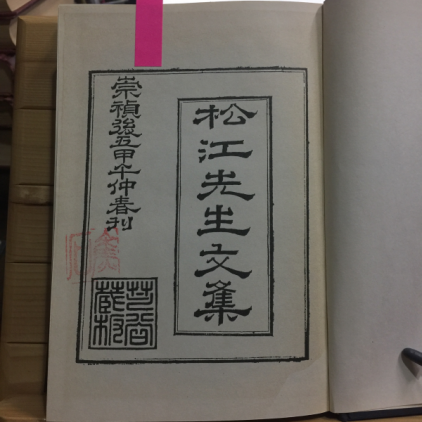 松江先生文集
崇禎後五甲午仲春刊
藏板